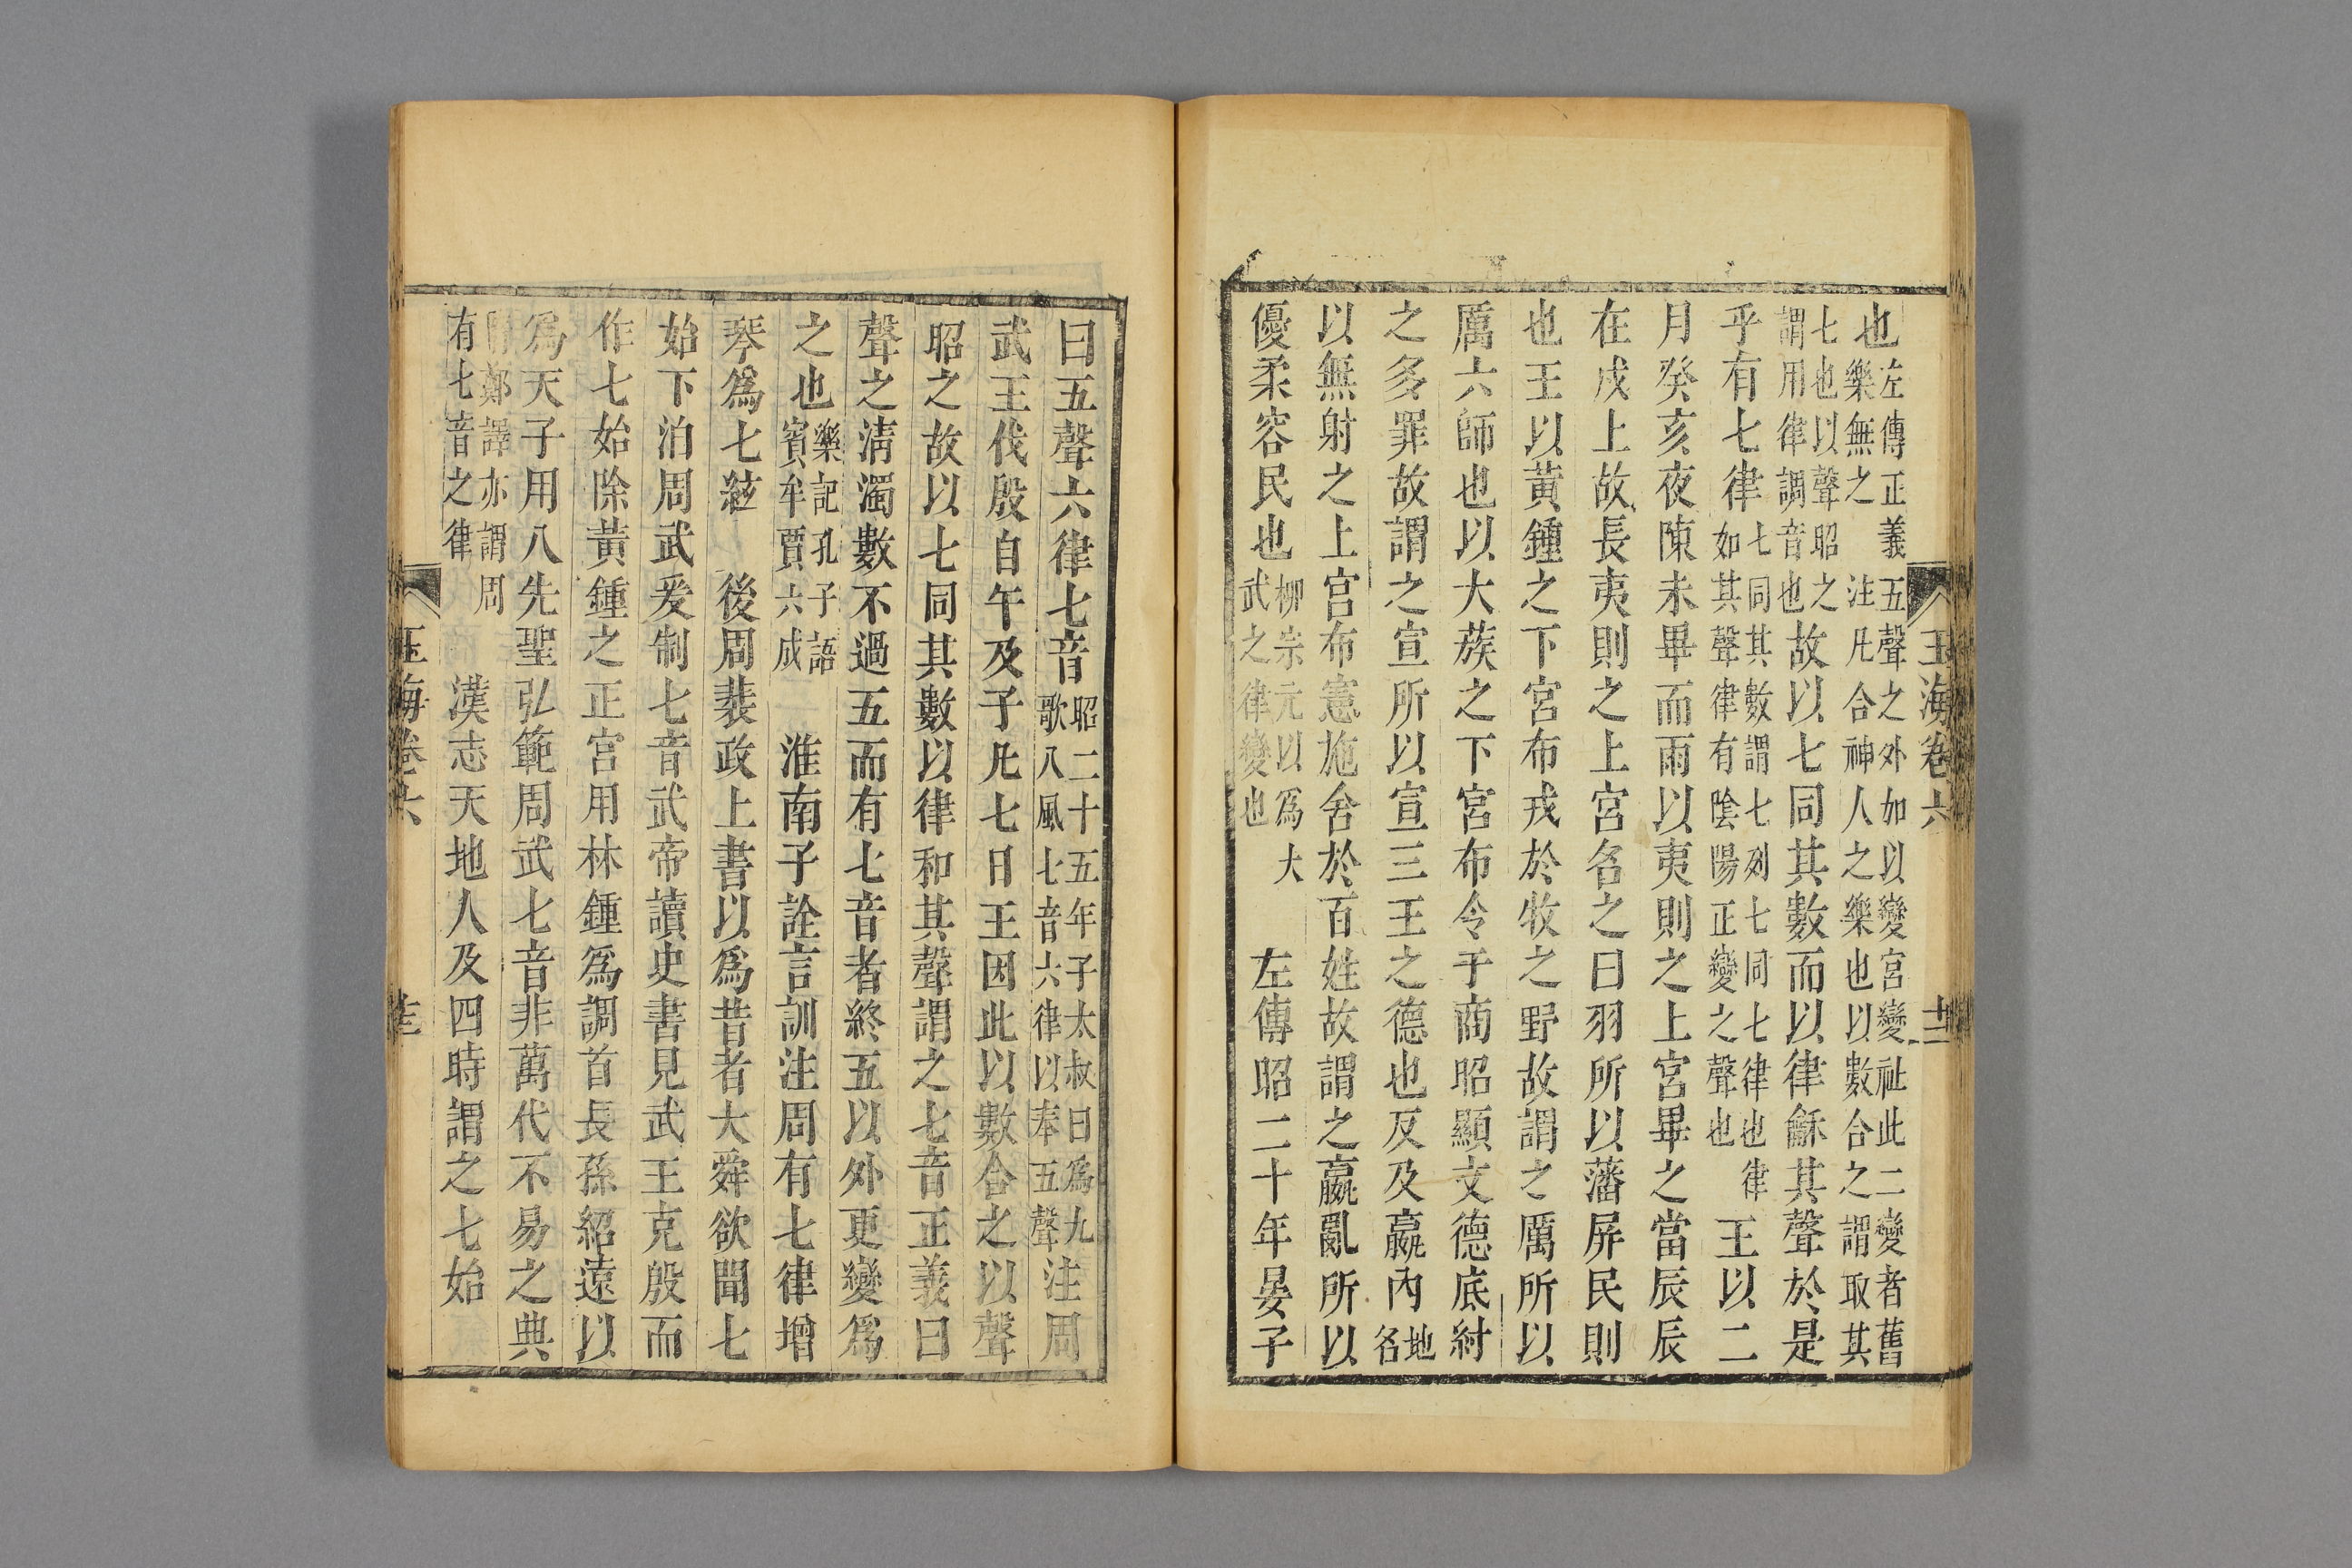 玉海卷六 十二
也左傳正義五聲之外如以變宮變祉此二變者舊樂無之 注凡合神人之樂也以數合之謂取其
七也以聲昭之謂用律調音也故以七同其數而以律龢其聲於是
乎有七律七同其數謂七列七同七律也律如其聲律有陰陽正變之聲也王以二
月癸亥夜陳未畢而雨以夷則之上宮畢之當辰辰
在戌上故長夷則之上宮名之曰羽所以藩屏民則
也王以黃鍾之下宮布戎於牧之野故謂之厲所以
厲六師也以大蔟之下宮布令于商昭顯文德底紂
之多罪故謂之宣所以宣三王之德也反及嬴內地名
以無射之上宮布憲施舍於百姓故謂之嬴亂所以
優柔容民也柳宗元以為大武之律變也 左傳昭二十年晏子
曰五聲六律七音昭二十五年子太叔曰為九歌八風七音六律以奉五聲注周
武王伐殷自午及子凡七日王因此以數合之以聲
昭之故以七同其數以律和其聲謂之七音正義曰
聲之清濁數不過五而有七音者終五以外更變為
之也樂記孔子語賓牟賈六成 淮南子詮言訓注周有七律增
琴為七絃 後周裴政上書以為昔者大舜欲聞七
始下洎周武爰制七音武帝讀史書見武王克殷而
作七始除黃鍾之正宮用林鍾為調首長孫紹遠以
為天子用八先聖弘範周武七音非萬代不易之典
隋鄭譯亦謂周有七音之律 漢志天地人及四時謂之七始
玉海卷六 十三